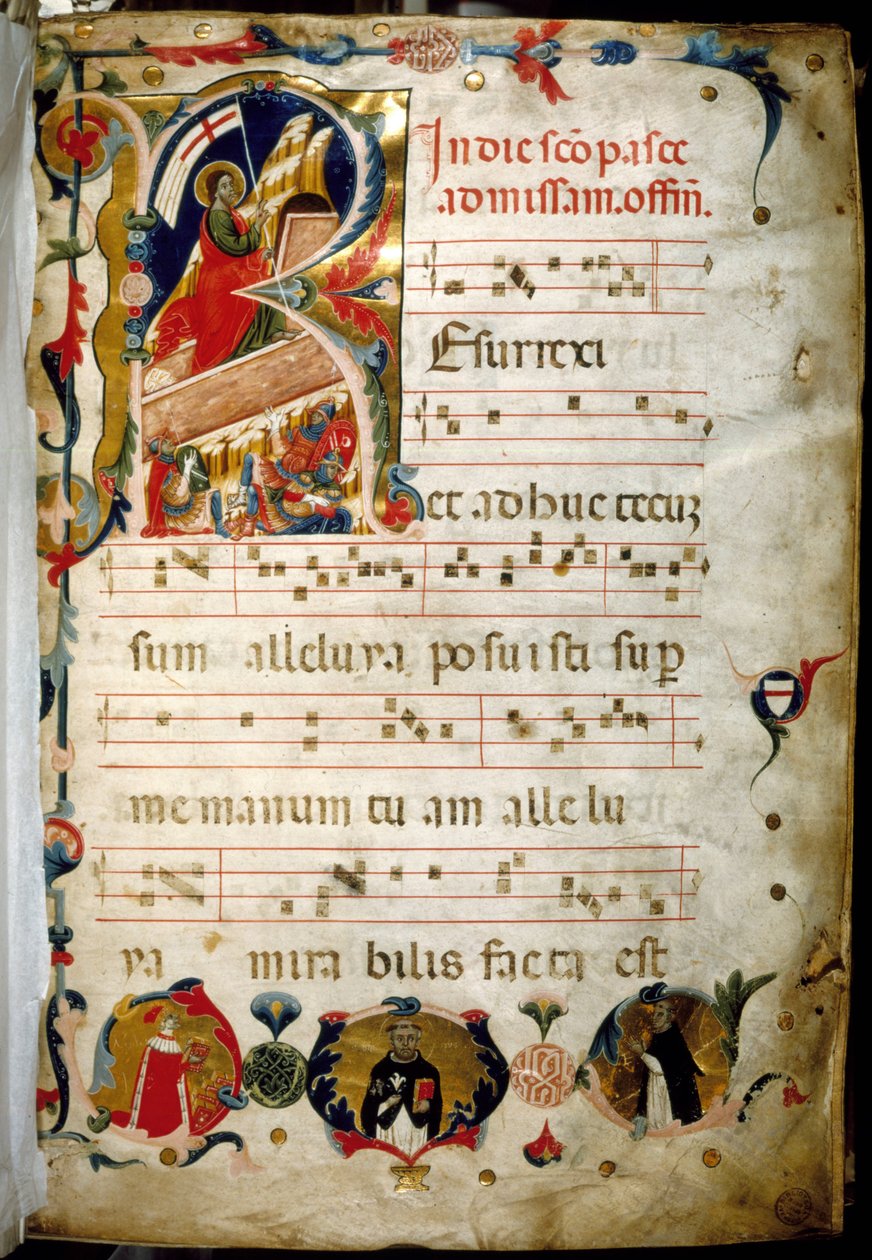 In die sc̄o pasce
ad missam. offm̄.
REsurrexi
et adhuc tecuʒ
sum alleluya posuisti suꝑ
me manum tuam allelu
ya mirabilis facta est